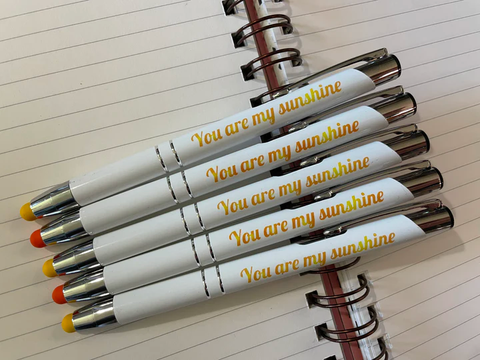 You are my sunshine
You are my sunshine
You are my sunshine
You are my sunshine
You are my sunshine